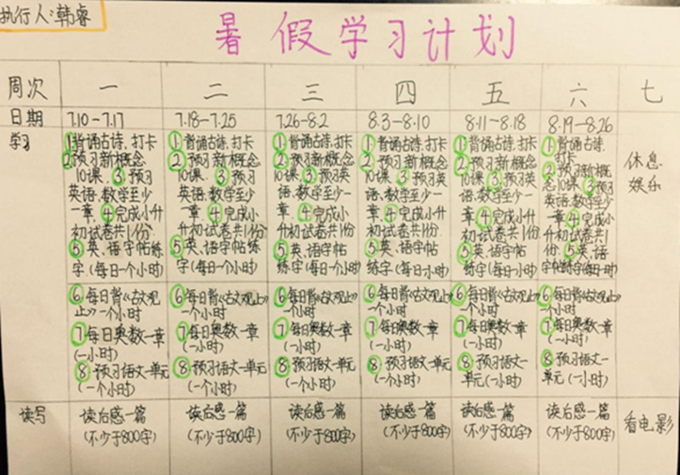 执行人:韩睿
暑假学习计划
周次 一 二 三 四 五 六 七
日期 7.10-7.17 7.18-7.25 7.26-8.2 8.3-8.10 8.11-8.18 8.19-8.26
学习
①背诵古诗、打卡
②预习新概念
10课、③预习
英语、数学至少
一章、④完成小升
初试卷共1份
⑤英、语字帖练
字(每日一个小时)
⑥每日背《古文观
止》一个小时
⑦每日奥数一章
(一小时)
⑧预习语文一单元
(一个小时)
①背诵古诗、打卡
②预习新概念
10课、③预习
英语、数学至少
一章、④完成小
升初试卷共1份
⑤英、语字帖练
字(每日一个小时)
⑥每日背《古文观止》
一个小时
⑦每日奥数一章
(一小时)
⑧预习语文一单元
(一个小时)
①背诵古诗、打卡
②预习新概念
10课、③预习英
语、数学至少一
章、④完成小升
初试卷共1份
⑤英、语字帖
练字(每日一个小时)
⑥每日背《古文观止》
一个小时
⑦每日奥数一章
(一小时)
⑧预习语文一单元
(一个小时)
①背诵古诗、打卡
②预习新概念
10课、③预习
英语、数学至少
一章、④完成小
升初试卷共1份
⑤英、语字帖
练字(每日一个小时)
⑥每日背《古文观止》
一个小时
⑦每日奥数一章
(一小时)
⑧预习语文一单元
(一个小时)
①背诵古诗、打卡
②预习新概念
10课、③预习英
语、数学至少一
章、④完成小升
初试卷共1份
⑤英、语字帖
练字(每日一个小时)
⑥每日背《古文观止》
一个小时
⑦每日奥数一章
(一小时)
⑧预习语文一
单元(一小时)
①背诵古诗、
打卡
②预习新概
念10课、③预习
英语、数学至少
一章、④完成小
升初试卷共1
份⑤英、语
字帖练字(每日一时)
⑥每日背《古文观止》
一个小时
⑦每日奥数一章
(一小时)
⑧预习语文一
单元(一小时)
休息
娱乐
读写
读后感一篇
(不少于800字)
读后感一篇
(不少于800字)
读后感一篇
(不少于800字)
读后感一篇
(不少于800字)
读后感一篇
(不少于800字)
读后感一篇
(不少于800字)
看电影